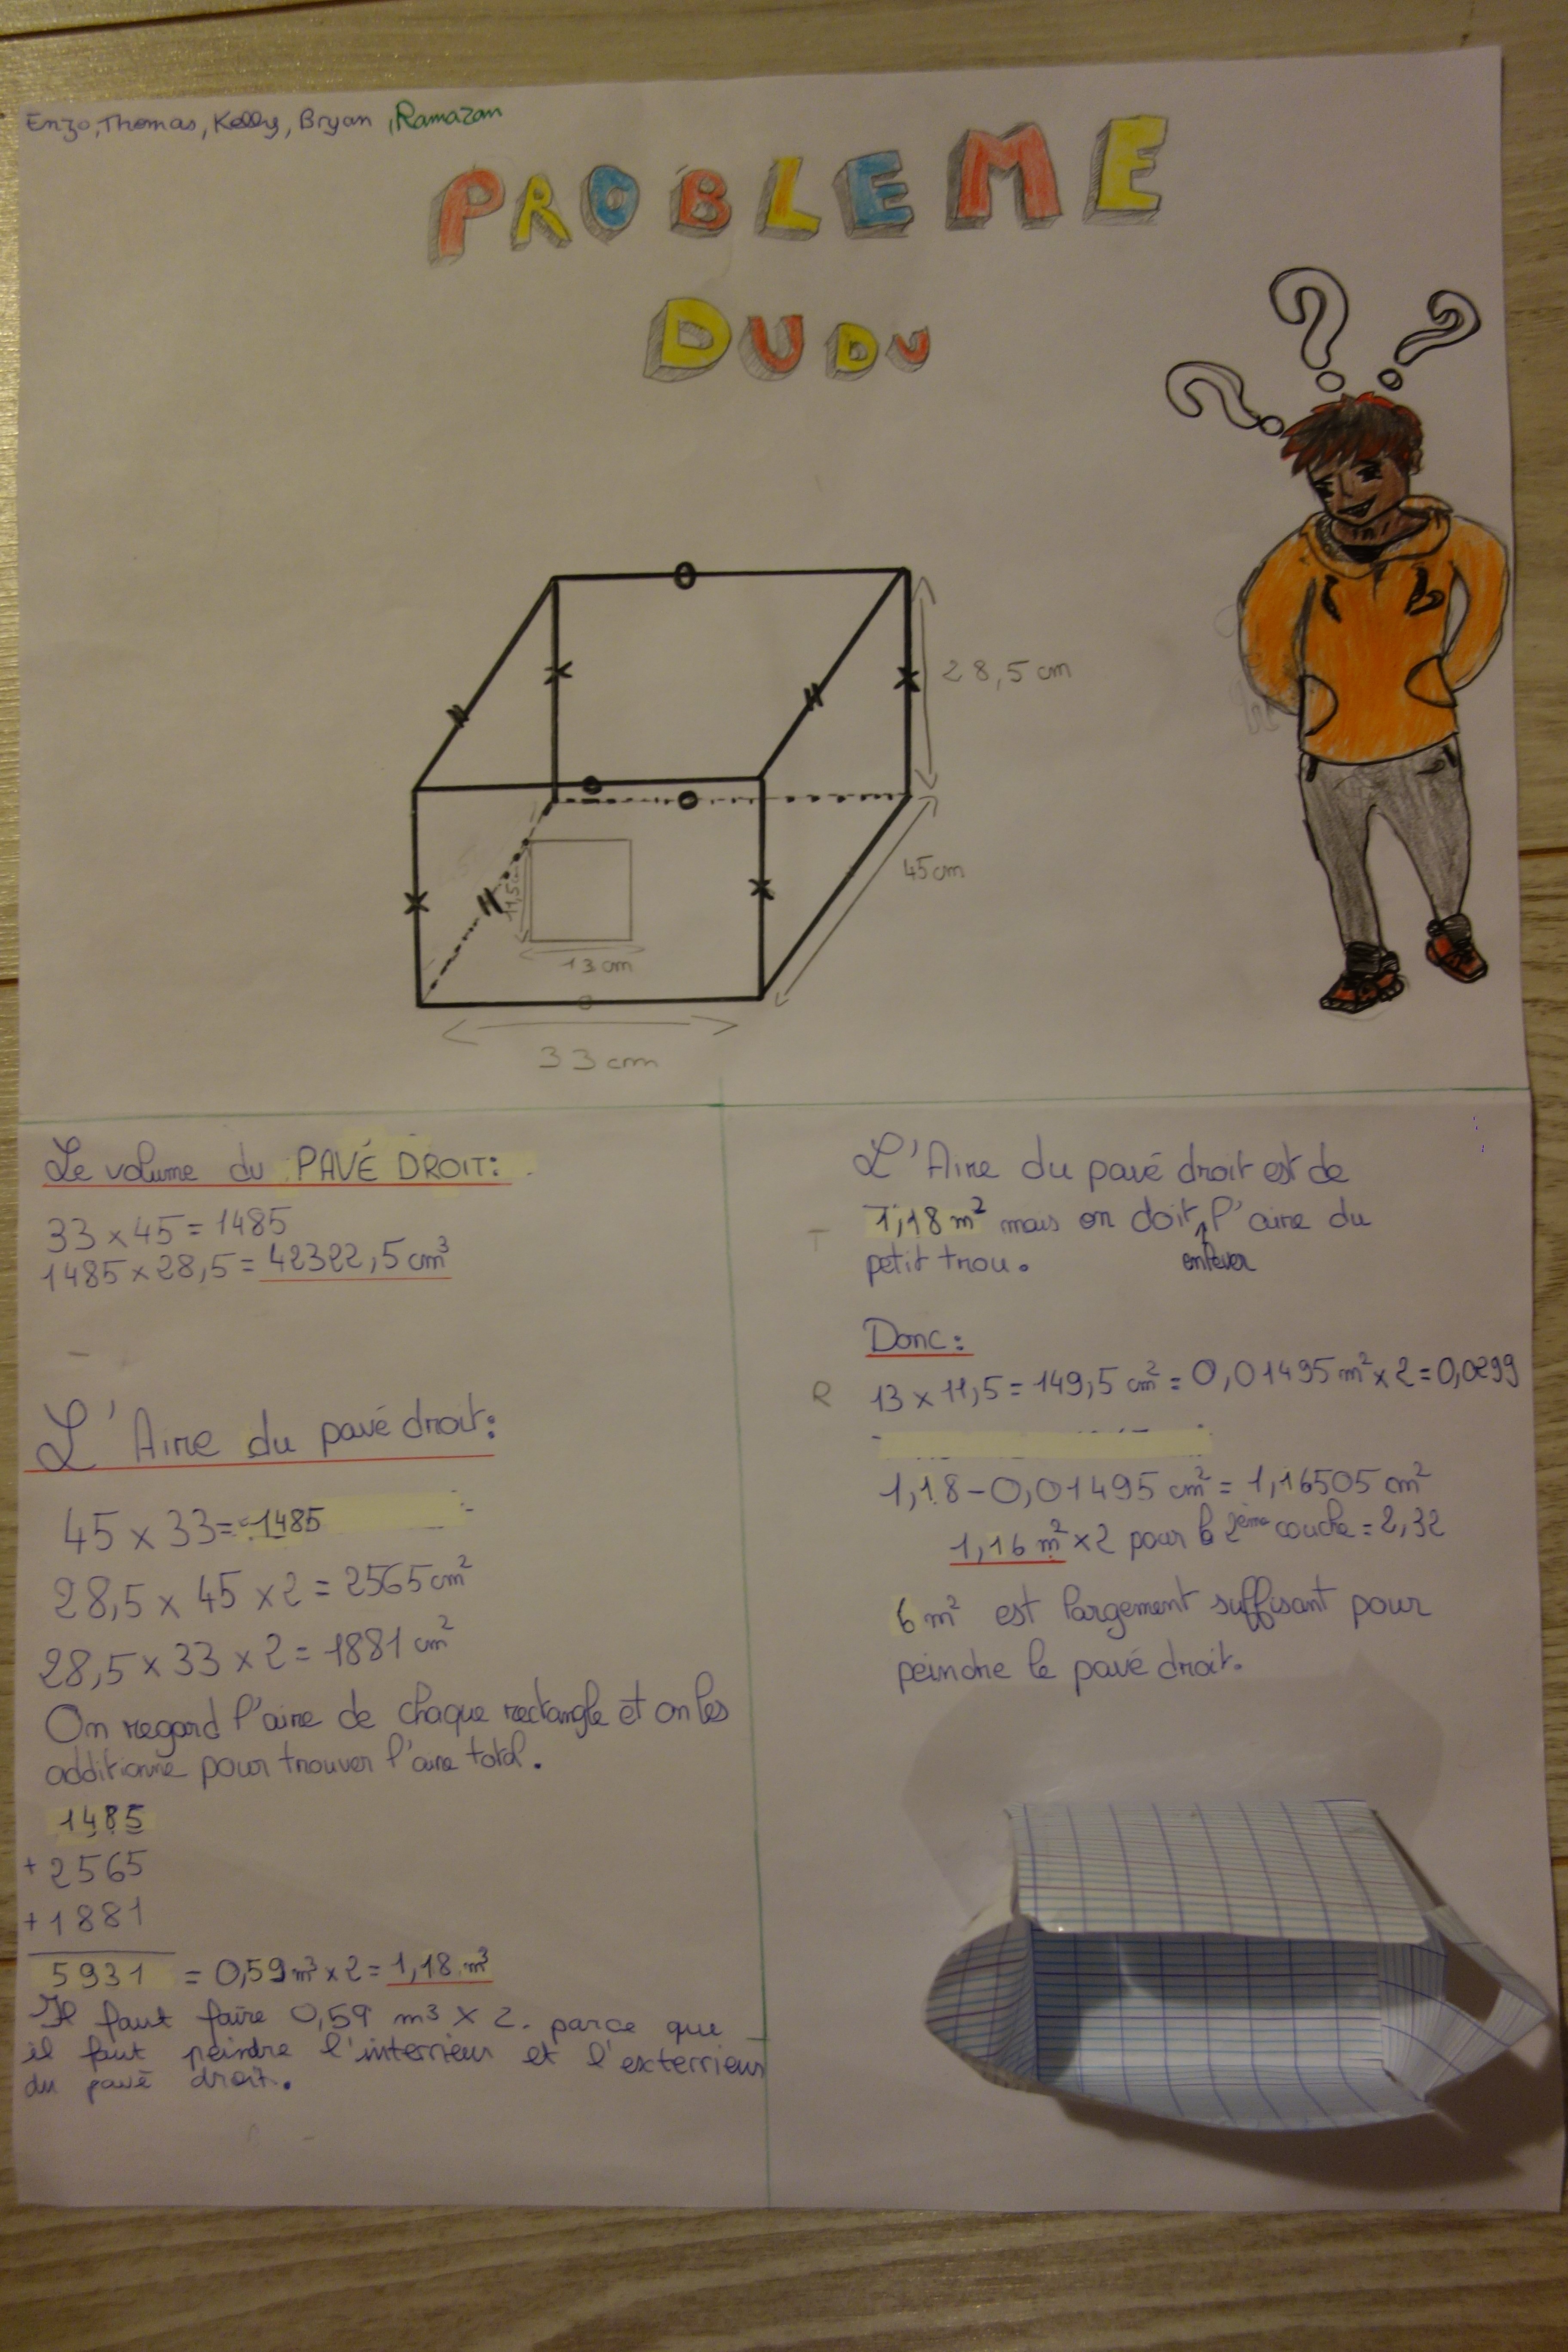 Enzo, Thomas, Kelly, Bryan, Ramazan
PROBLEME
DUDU
28,5 cm
45cm
11,5cm
13 cm
33 cm
Le volume du PAVÉ DROIT:
33 x 45 = 1485
1485 x 28,5 = 42322,5 cm³
L'Aire du pavé droit:
45 x 33 = 1485
28,5 x 45 x 2 = 2565 cm²
28,5 x 33 x 2 = 1881 cm²
On regard l'aire de chaque rectangle et on les
additionne pour trouver l'aire total.
1485
+ 2565
+ 1881
5931 = 0,59 m³ x 2 = 1,18 m³
Il faut faire 0,59 m³ X 2. parce que
il faut peindre l'interrieur et l'exterrieur
du pavé droit.
L'Aire du pavé droit est de
1,18 m² mais on doit l'aire du
enlever
petit trou.
Donc:
13 x 11,5 = 149,5 cm² = 0,01495 m² x 2 = 0,0299
1,18 - 0,01495 cm² = 1,16505 cm²
1,16 m² x 2 pour la 2ème couche = 2,32
6 m² est largement suffisant pour
peindre le pavé droit.